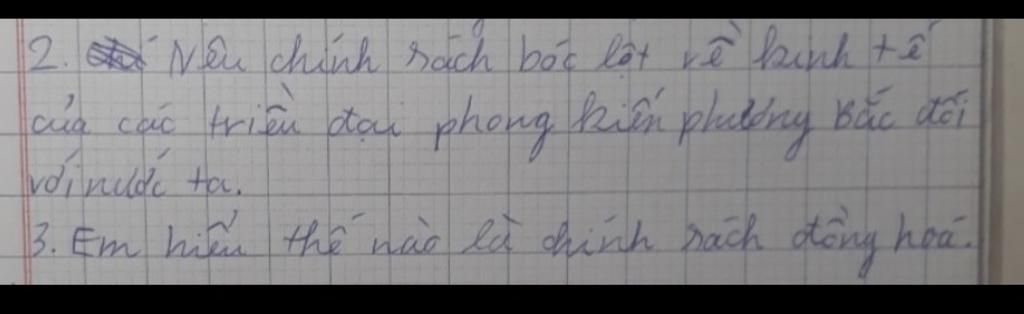 2. Nêu chính sách bóc lột về kinh tế
của các triều đại phong kiến phương Bắc đối
với nước ta.
3. Em hiểu thế nào là chính sách đồng hoá.